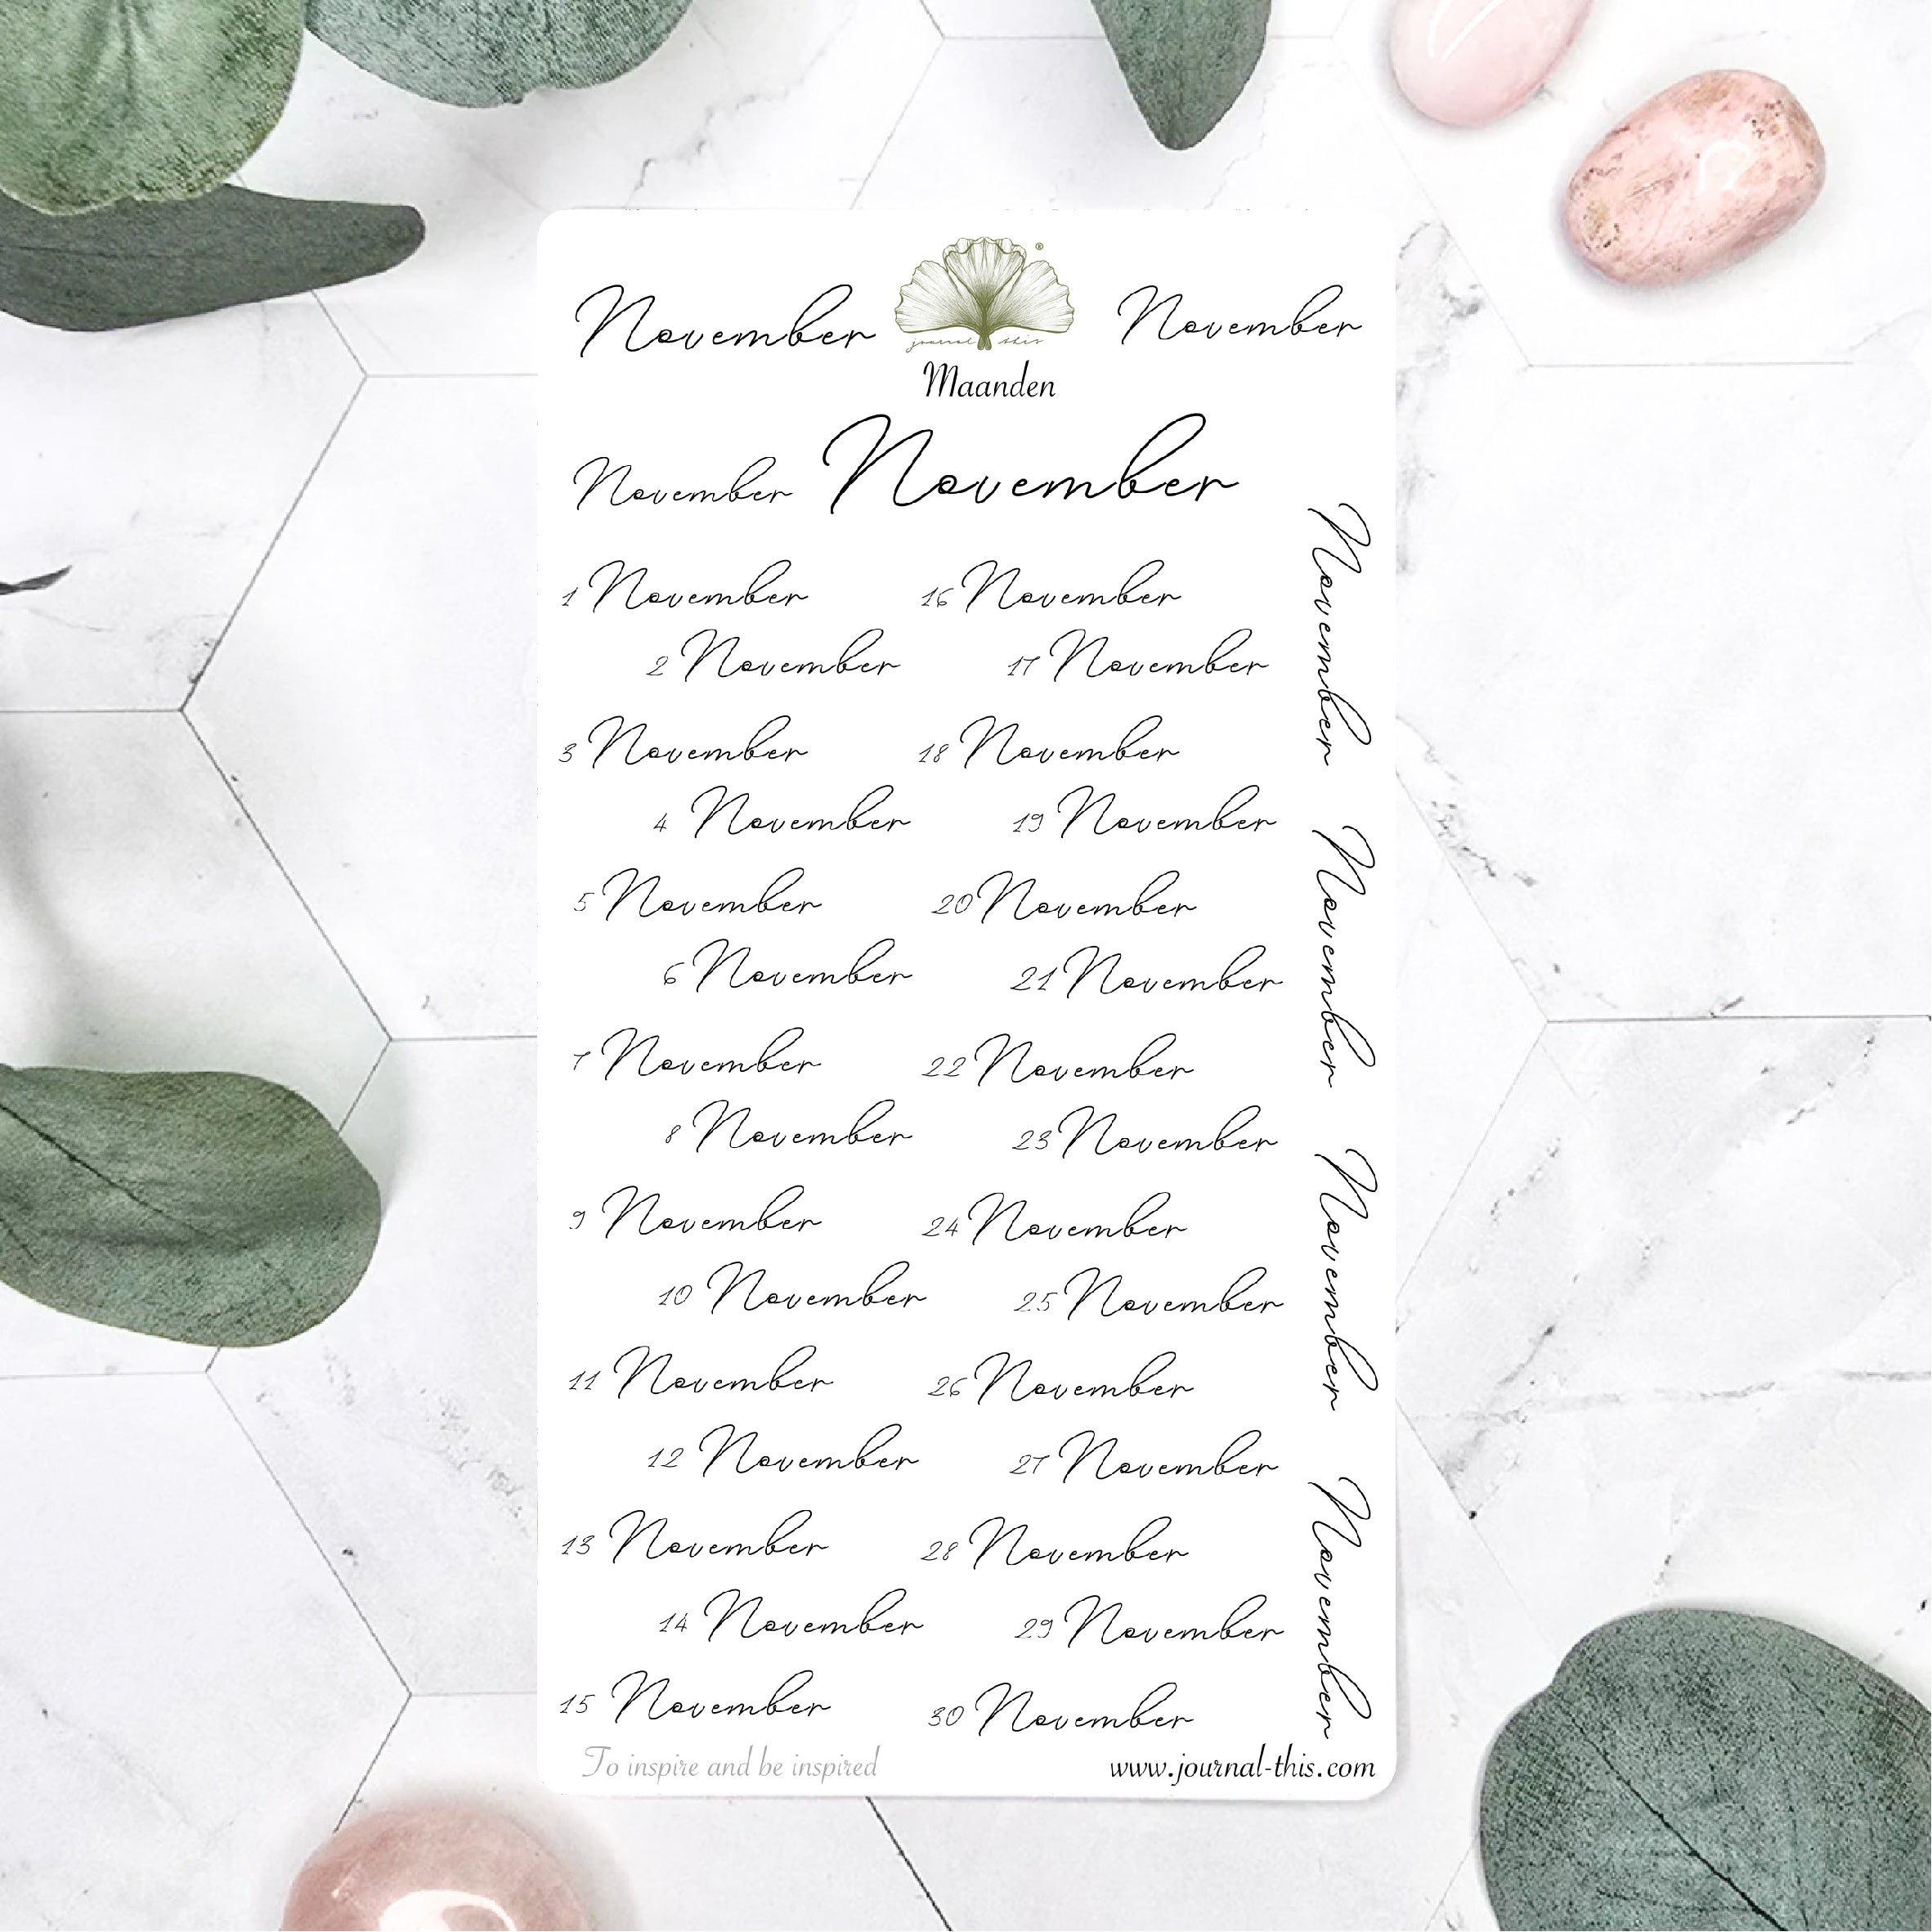 November
®
journal this
November
Maanden
November
November
1 November
16 November
2 November
17 November
3 November
18 November
4 November
19 November
5 November
20 November
6 November
21 November
7 November
22 November
8 November
23 November
9 November
24 November
10 November
25 November
11 November
26 November
12 November
27 November
13 November
28 November
14 November
29 November
15 November
30 November
November
November
November
November
To inspire and be inspired
www.journal-this.com